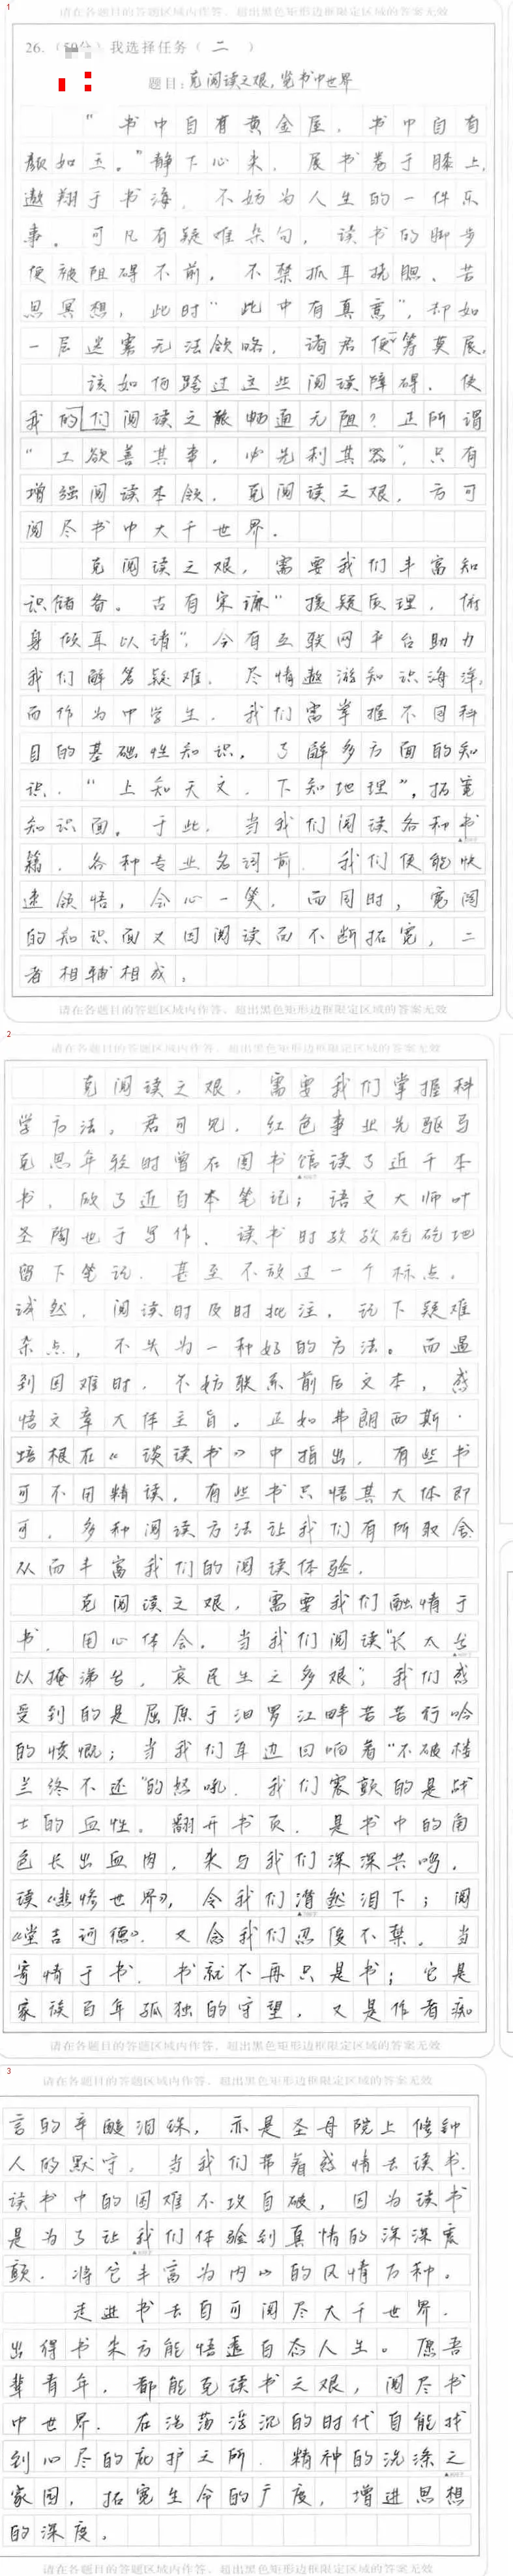 1
请在各题目的答题区域内作答，超出黑色矩形边框限定区域的答案无效
26.（60分）我选择任务（ 二 ）
题目：克阅读之艰，览书中世界
“书中自有黄金屋，书中自有
颜如玉。”静下心来，展书卷于膝上，
遨翔于书海，不妨为人生的一件乐
事。可凡有疑难杂句，读书的脚步
便被阻碍不前，不禁抓耳挠腮、苦
思冥想，此时“此中有真意”，却如
一层迷雾无法领略，诸君便一筹莫展。
该如何跨过这些阅读障碍，使
我的们阅读之旅畅通无阻？正所谓
“工欲善其事，必先利其器”，只有
增强阅读本领，克阅读之艰，方可
阅尽书中大千世界。
克阅读之艰，需要我们丰富知
识储备。古有宋濂“援疑质理，俯
身倾耳以请”，今有互联网平台助力
我们解答疑难，尽情遨游知识海洋，
而作为中学生，我们需掌握不同科
目的基础性知识，了解多方面的知
识，“上知天文，下知地理”，拓宽
知识面。于此，当我们阅读各种书
籍，各种专业名词前，我们便能快
速领悟，会心一笑。而同时，宽阔
的知识面又因阅读而不断拓宽，二
者相辅相成。
请在各题目的答题区域内作答，超出黑色矩形边框限定区域的答案无效
2
请在各题目的答题区域内作答，超出黑色矩形边框限定区域的答案无效
克阅读之艰，需要我们掌握科
学方法。君可见，红色事业先驱马
克思年轻时曾在图书馆读了近千本
书，做了近百本笔记；语文大师叶
圣陶也于写作、读书时孜孜矻矻地
留下笔记，甚至不放过一个标点。
诚然，阅读时及时批注，记下疑难
杂点，不失为一种好的方法。而遇
到困难时，不妨联系前后文本，感
悟文章大体主旨。正如弗朗西斯·
培根在《谈读书》中指出，有些书
可不用精读，有些书只悟其大体即
可，多种阅读方法让我们有所取舍
从而丰富我们的阅读体验。
克阅读之艰，需要我们融情于
书，用心体会。当我们阅读“长太息
以掩涕兮，哀民生之多艰”；我们感
受到的是屈原于汨罗江畔苦苦行吟
的愤慨；当我们耳边回响着“不破楼
兰终不还”的怒吼，我们震颤的是战
士的血性。翻开书页，是书中的角
色长出血肉，来与我们深深共鸣。
读《悲惨世界》，令我们潸然泪下；阅
《堂吉诃德》，又令我们忍俊不禁。当
寄情于书，书就不再只是书；它是
家族百年孤独的守望，又是作者痴
请在各题目的答题区域内作答，超出黑色矩形边框限定区域的答案无效
3
请在各题目的答题区域内作答，超出黑色矩形边框限定区域的答案无效
言的辛酸泪珠，亦是圣母院上修钟
人的默守。当我们带着感情去读书，
读书中的困难不攻自破，因为读书
是为了让我们体验到真情的深深震
颤，将它丰富为内心的风情万种。
走进书去自可阅尽大千世界，
出得书来方能悟透百态人生。愿吾
辈青年，都能克读书之艰，阅尽书
中世界，在浩荡浮沉的时代自能找
到心尽的庇护之所，精神的洗涤之
家园，拓宽生命的广度，增进思想
的深度。
请在各题目的答题区域内作答，超出黑色矩形边框限定区域的答案无效